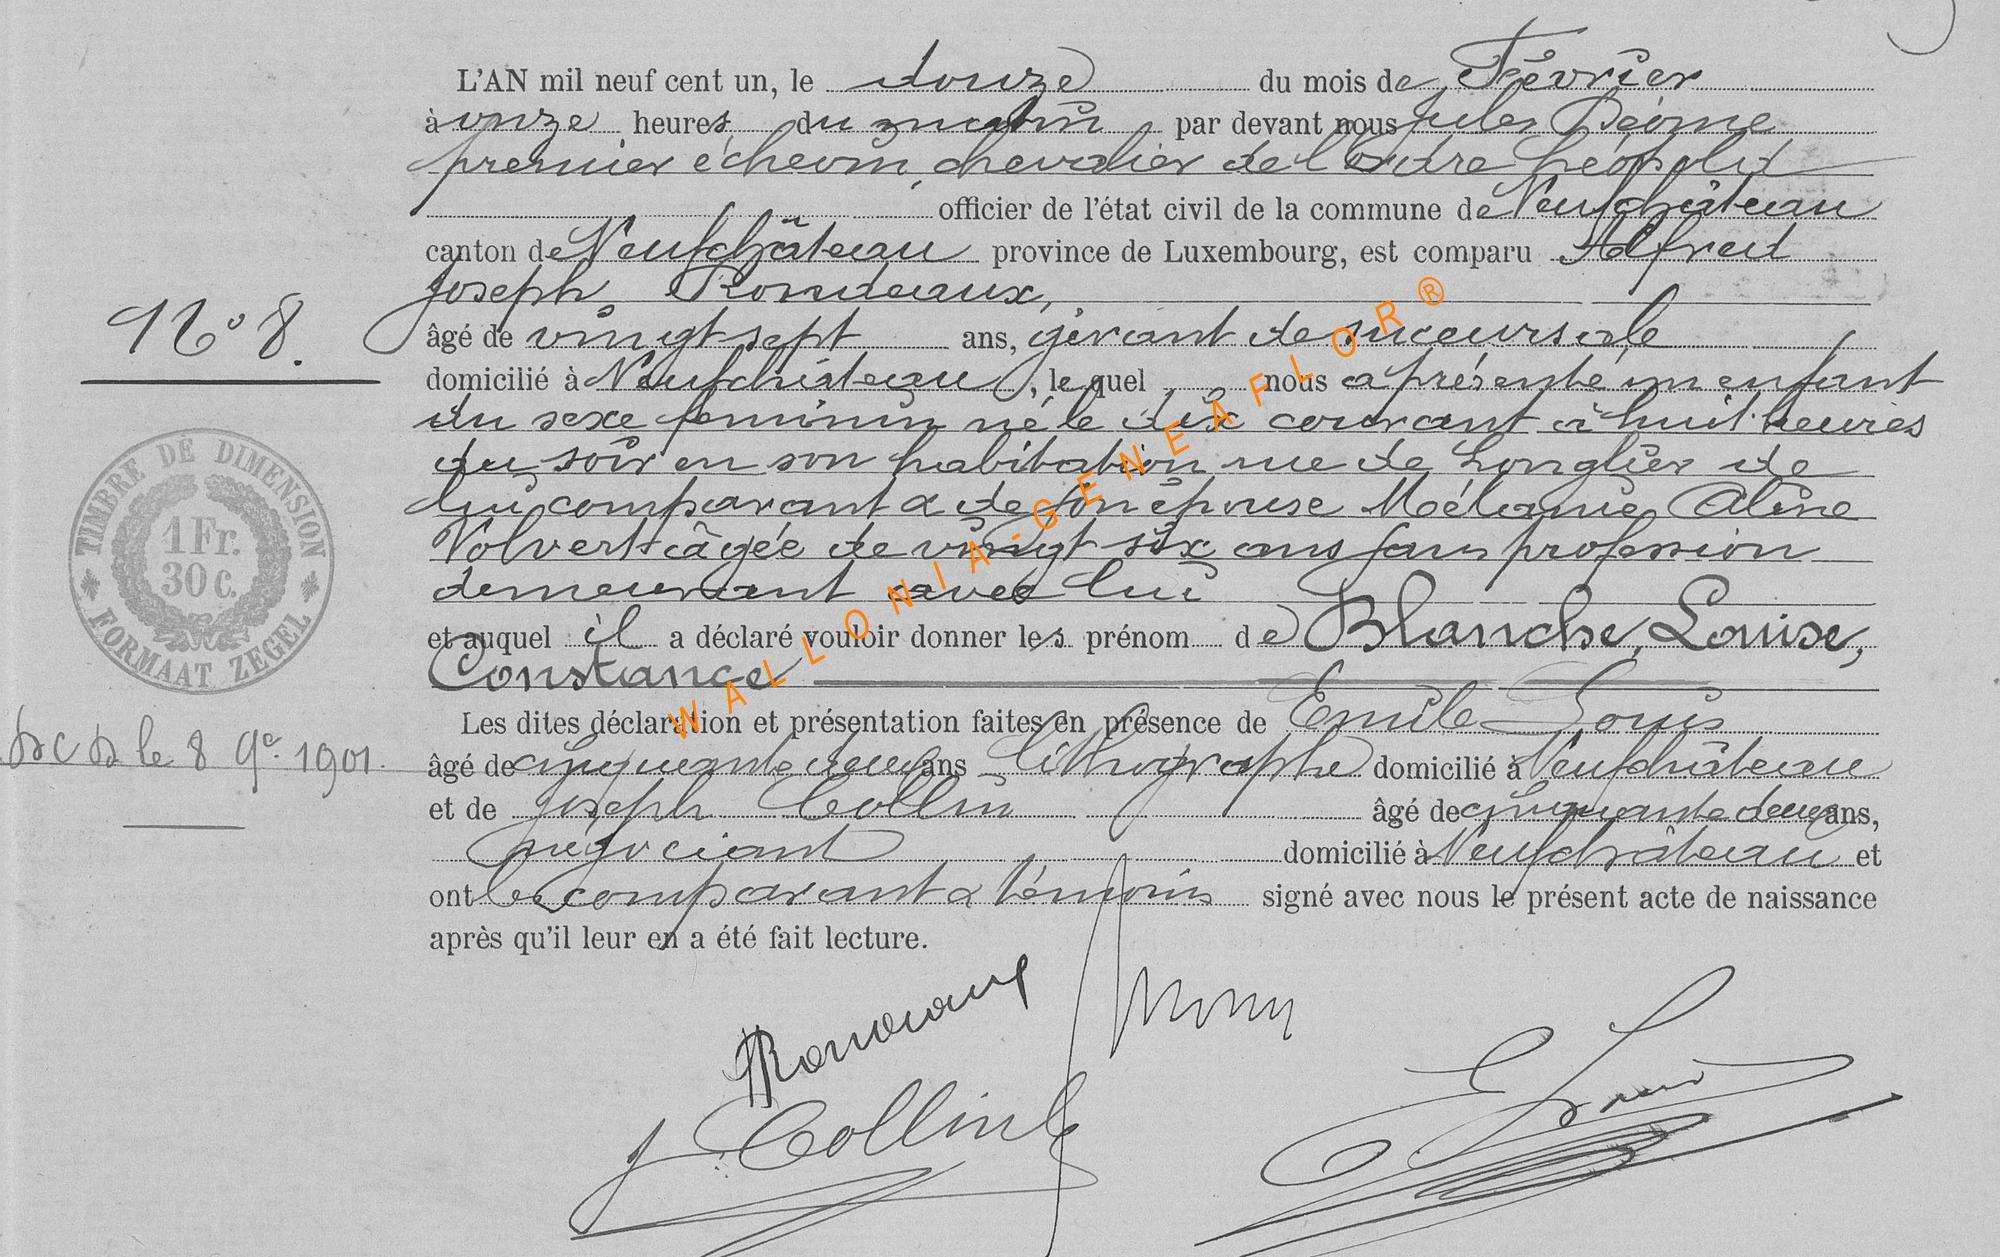 L'AN mil neuf cent un, le douze du mois de Février
à onze heures du matin par devant nous Jules
premier échevin, chevalier de l'Ordre Léopold
officier de l'état civil de la commune de Neufchâteau
canton de Neufchâteau province de Luxembourg, est comparu Alfred
Joseph Rondeaux,
N° 8.
âgé de vingt sept ans, gérant de succursale
domicilié à Neufchâteau, le quel nous a présenté un enfant
du sexe feminin né le dix courant à huit heures
du soir en son habitation rue de Longlier de
lui comparant & de son épouse Mélanie Aline
Volvert âgée de vingt six ans sans profession
demeurant avec lui
TIMBRE DE DIMENSION
1 Fr.
30 c.
FORMAAT ZEGEL
et auquel il a déclaré vouloir donner les prénom de Blanche, Louise,
Constance
Les dites déclaration et présentation faites en présence de Emile Louis
le 8 9e 1901.
âgé de cinquante deux ans lithographe domicilié à Neufchâteau
et de Joseph Collin âgé de cinquante deux ans,
négociant domicilié à Neufchâteau et
ont les comparant & témoins signé avec nous le présent acte de naissance
après qu'il leur en a été fait lecture.
Rondeaux
J. Collin
E Louis
WALLONIA-GENEAFLOR®